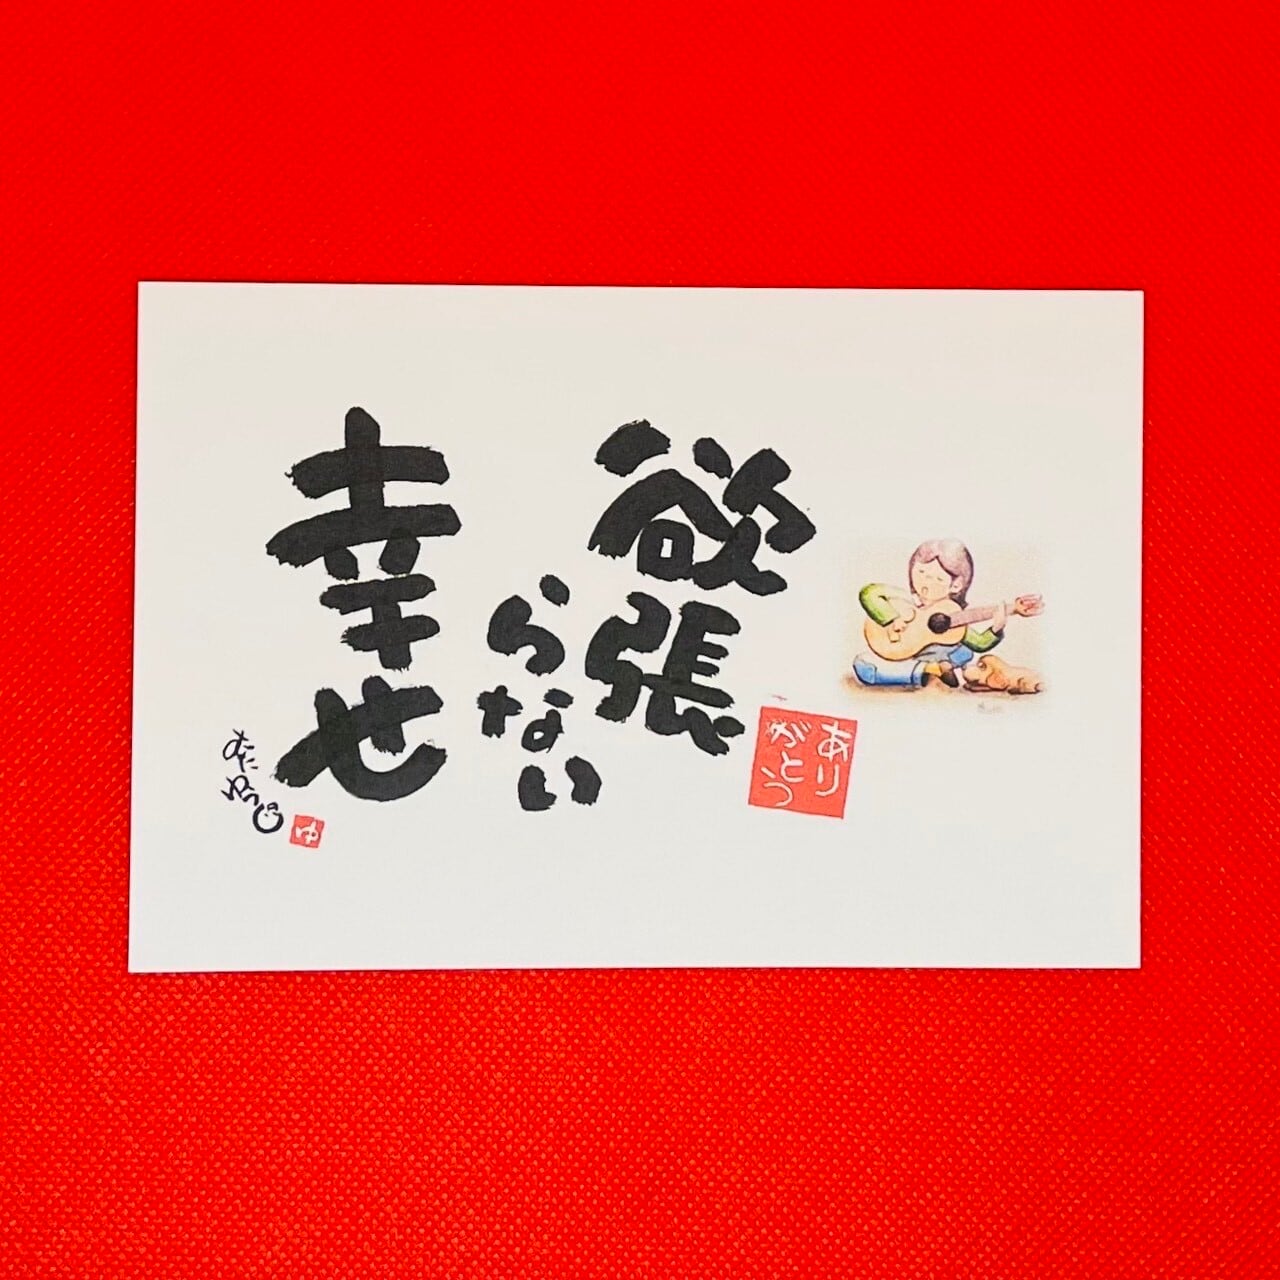 欲張
らない
幸せ
あり
がとう
おた
ゆうじ
ゆ